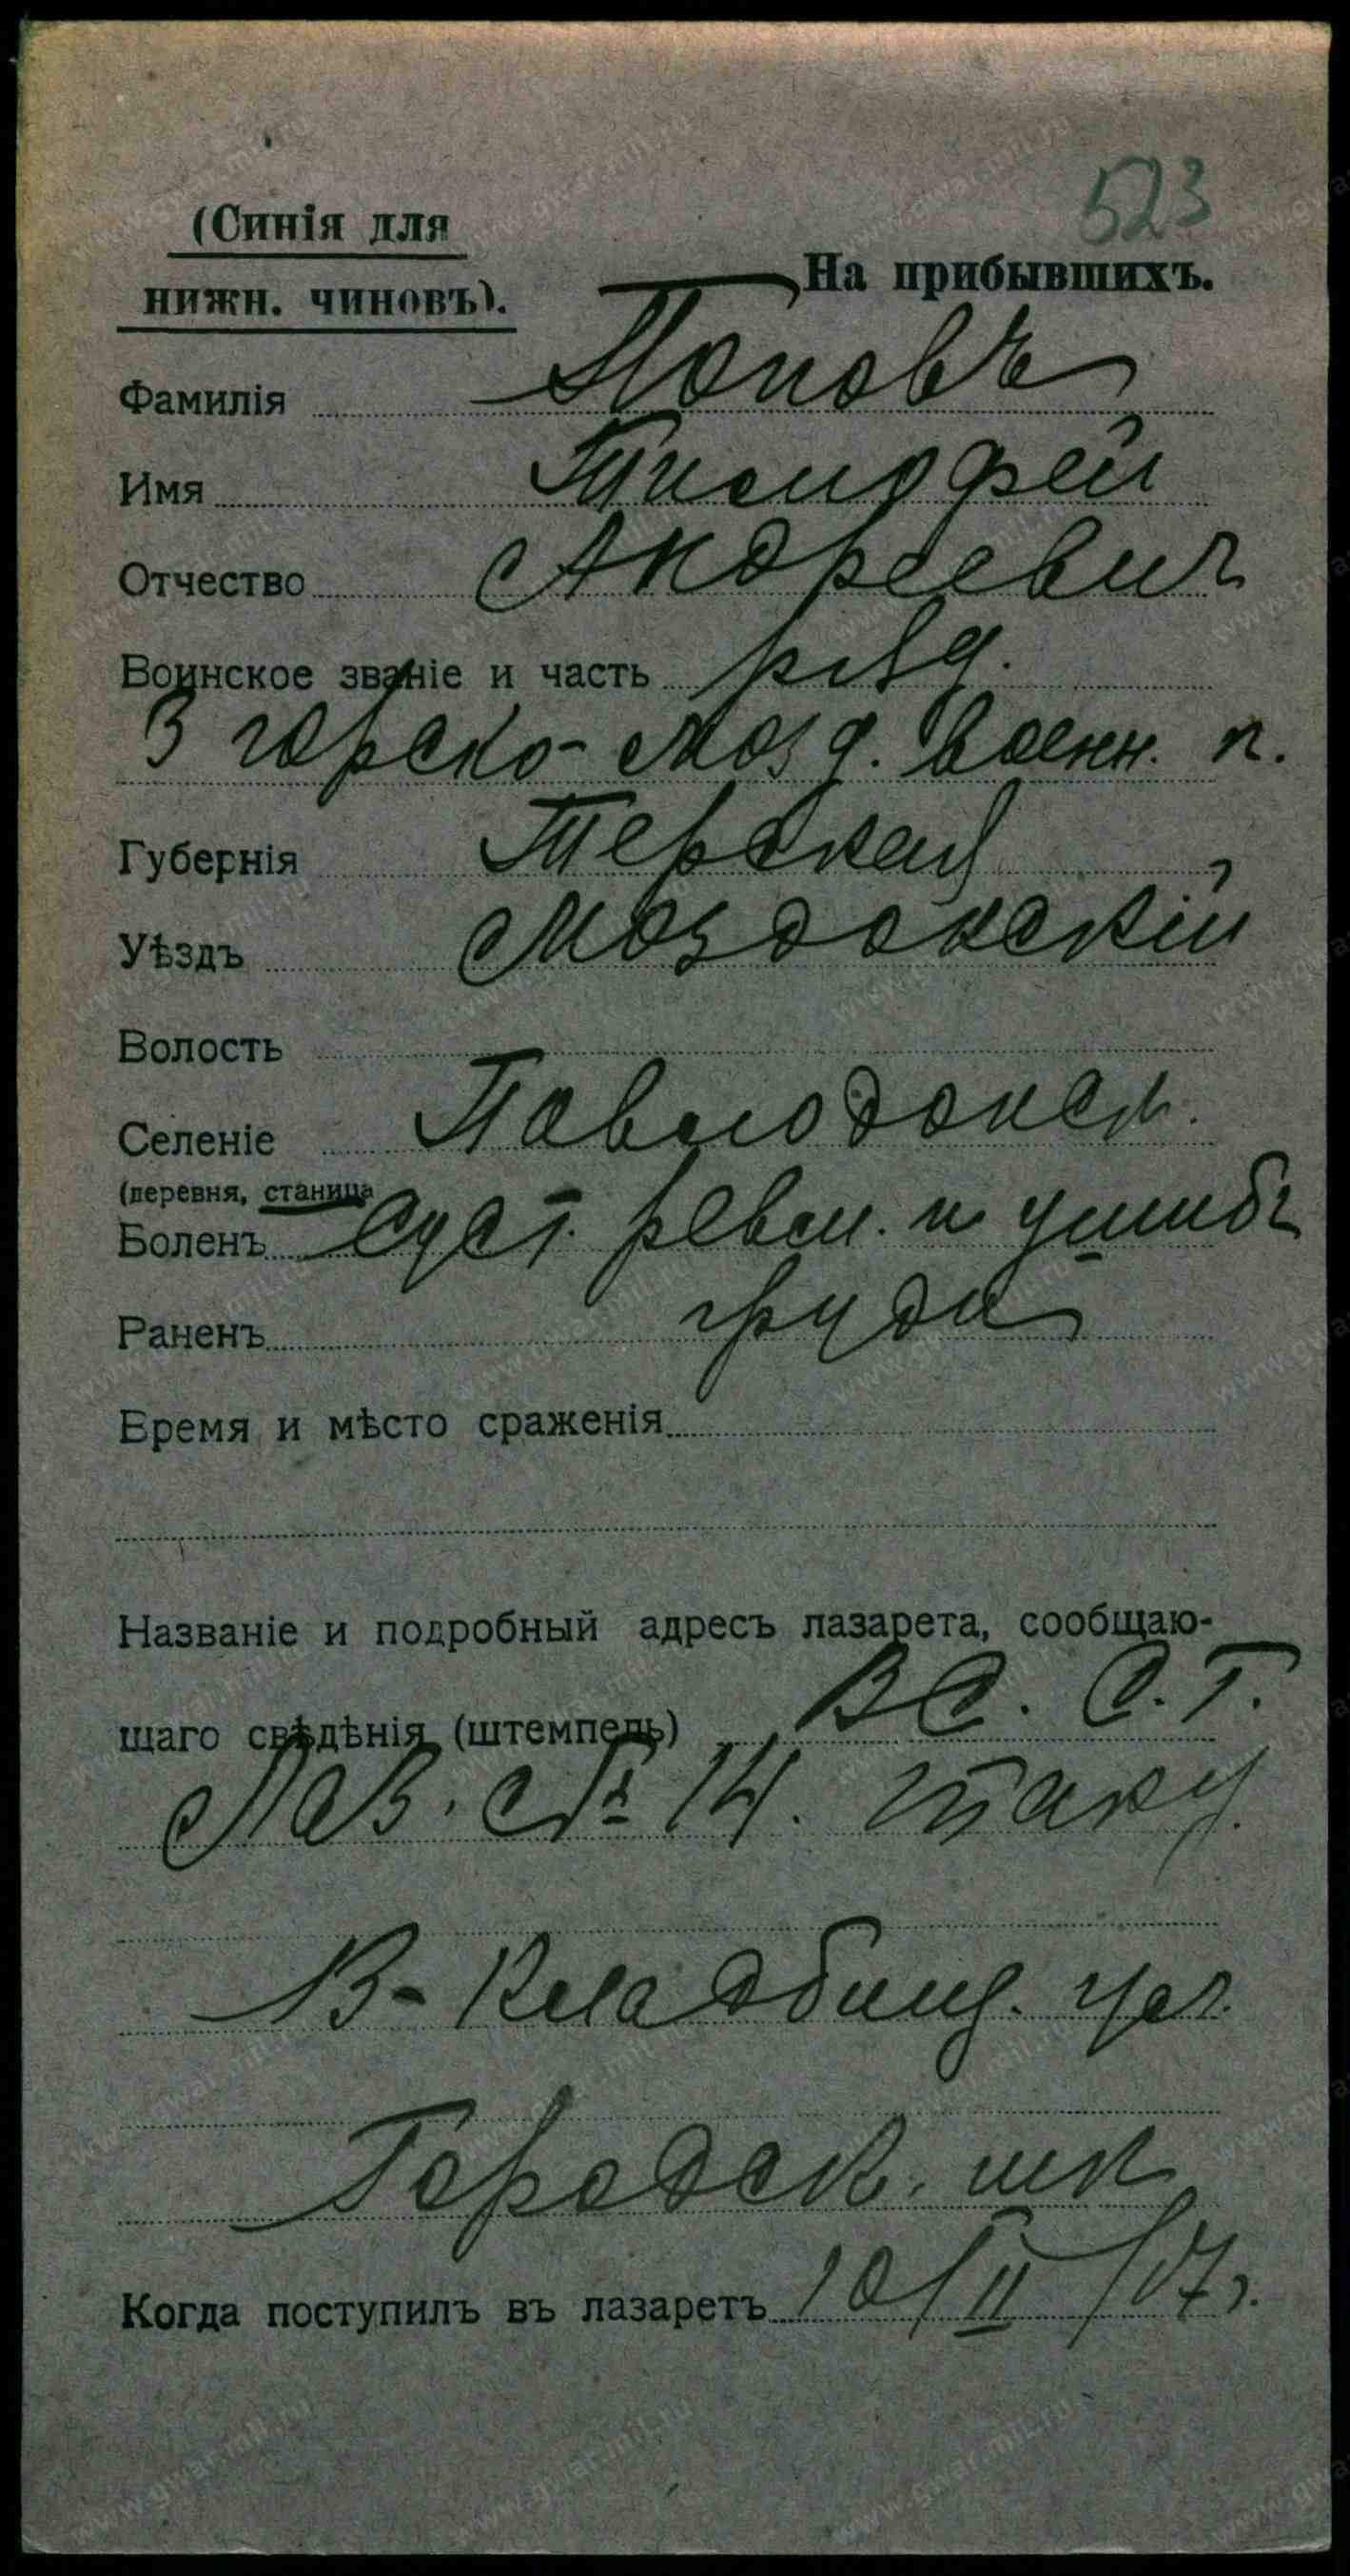 523
(Синія для
нижн. чиновъ).
На прибывшихъ.
Фамилія Поповъ
Имя Тимофей
Отчество Андреевич
Воинское званіе и часть ряд.
3 горско-мозд. военн. п.
Губернія Терская
Уѣздъ Моздокскій
Волость
Селеніе Павлодонск.
(деревня, станица
Боленъ Суст. ревм. и ушибъ
Раненъ груди
Время и мѣсто сраженія
Названіе и подробный адресъ лазарета, сообщаю-
щаго свѣдѣнія (штемпель) В С. С. Г.
Лаз. № 14.
В-Кладбищ. ул.
Городск. шк
Когда поступилъ въ лазаретъ 10/II/17г.
www.gwar.mil.ru